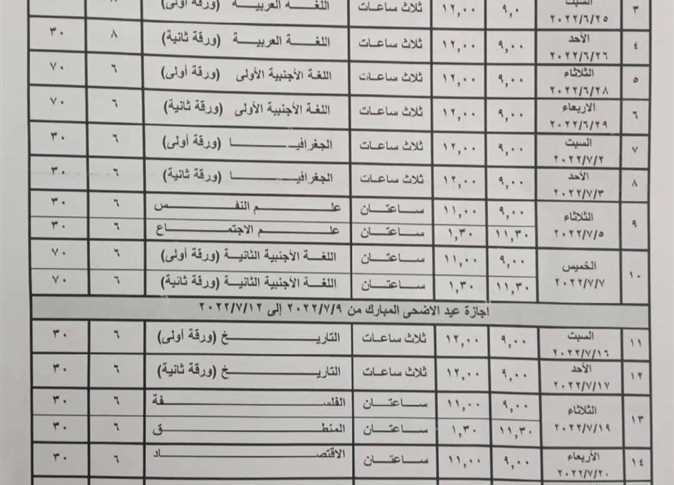 ٣ السبت ٢٠٢٢/٦/٢٥ ٩,٠ ١٢,٠٠ ثلاث ساعات اللغة العربية (ورقة أولى) ٨
٤ الأحد ٢٠٢٢/٦/٢٦ ٩,٠٠ ١٢,٠٠ ثلاث ساعات اللغة العربية (ورقة ثانية) ٨ ٣٠
٥ الثلاثاء ٢٠٢٢/٦/٢٨ ٩,٠٠ ١٢,٠٠ ثلاث ساعات اللغة الأجنبية الأولى (ورقة أولى) ٦ ٧٠
٦ الاربعاء ٢٠٢٢/٦/٢٩ ٩,٠٠ ١٢,٠٠ ثلاث ساعات اللغة الأجنبية الأولى (ورقة ثانية) ٦ ٧٠
٧ السبت ٢٠٢٢/٧/٢ ٩,٠٠ ١٢,٠٠ ثلاث ساعات الجغرافيا (ورقة أولى) ٦ ٣٠
٨ الأحد ٢٠٢٢/٧/٣ ٩,٠٠ ١٢,٠٠ ثلاث ساعات الجغرافيا (ورقة ثانية) ٦ ٣٠
٩ الثلاثاء ٢٠٢٢/٧/٥ ٩,٠٠ ١١,٠٠ ساعتان علم النفس ٦ ٣٠
١١,٣٠ ١,٣٠ ساعتان علم الاجتماع ٦ ٣٠
١٠ الخميس ٢٠٢٢/٧/٧ ٩,٠٠ ١١,٠٠ ساعتان اللغة الأجنبية الثانية (ورقة أولى) ٦ ٧٠
١١,٣٠ ١,٣٠ ساعتان اللغة الأجنبية الثانية (ورقة ثانية) ٦ ٧٠
اجازة عيد الاضحى المبارك من ٢٠٢٢/٧/٩ إلى ٢٠٢٢/٧/١٢
١١ السبت ٢٠٢٢/٧/١٦ ٩,٠٠ ١٢,٠٠ ثلاث ساعات التاريخ (ورقة أولى) ٦ ٣٠
١٢ الأحد ٢٠٢٢/٧/١٧ ٩,٠٠ ١٢,٠٠ ثلاث ساعات التاريخ (ورقة ثانية) ٦ ٣٠
١٣ الثلاثاء ٢٠٢٢/٧/١٩ ٩,٠٠ ١١,٠٠ ساعتان الفلسفة ٦ ٣٠
١١,٣٠ ١,٣٠ ساعتان المنطق ٦ ٣٠
١٤ الأربعاء ٢٠٢٢/٧/٢٠ ٩,٠٠ ١١,٠٠ ساعتان الاقتصاد ٦ ٣٠